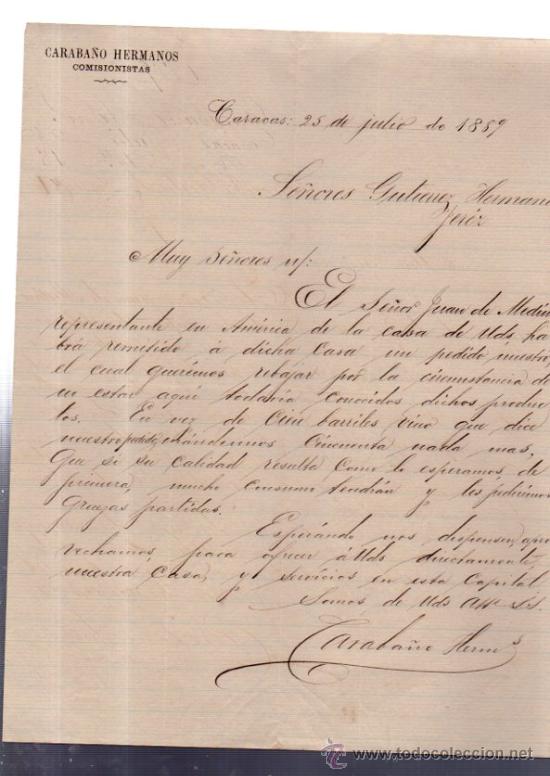 CARABAÑO HERMANOS
COMISIONISTAS
Caracas: 25 de julio de 1889
Señores Gutierrez Herman
Jeréz
Muy Señores n/:
El Señor Juan de Medin
representante en América de la casa de Uds ha
brá remitido á dicha casa un pedido nuestro
el cual querimos rebajar por la circunstancia de
no estar aquí todavía conocidos dichos produc
tos. En vez de Cien barriles vino que dice
nuestro pedido, mándennos Cincuenta nada mas,
que si su calidad resulta como lo esperamos de
primera, mucho consumo tendrán y les pediremos
gruezas partidas.
Esperándo nos dispensen, apro
vechamos, para ofrecer á Uds directamente,
nuestra Casa, y servicios en esta Capital
Somos de Uds Att. S.S.
Carabaño Herms
todocoleccion.net